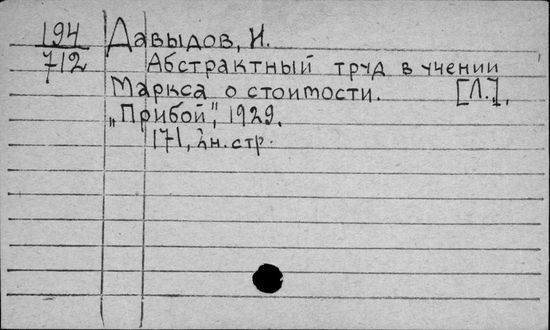 194 Давыдов, И.
712 Абстрактный труд в учении
Маркса о стоимости. [Л.],
„Прибой", 1929.
171, 2н. стр.